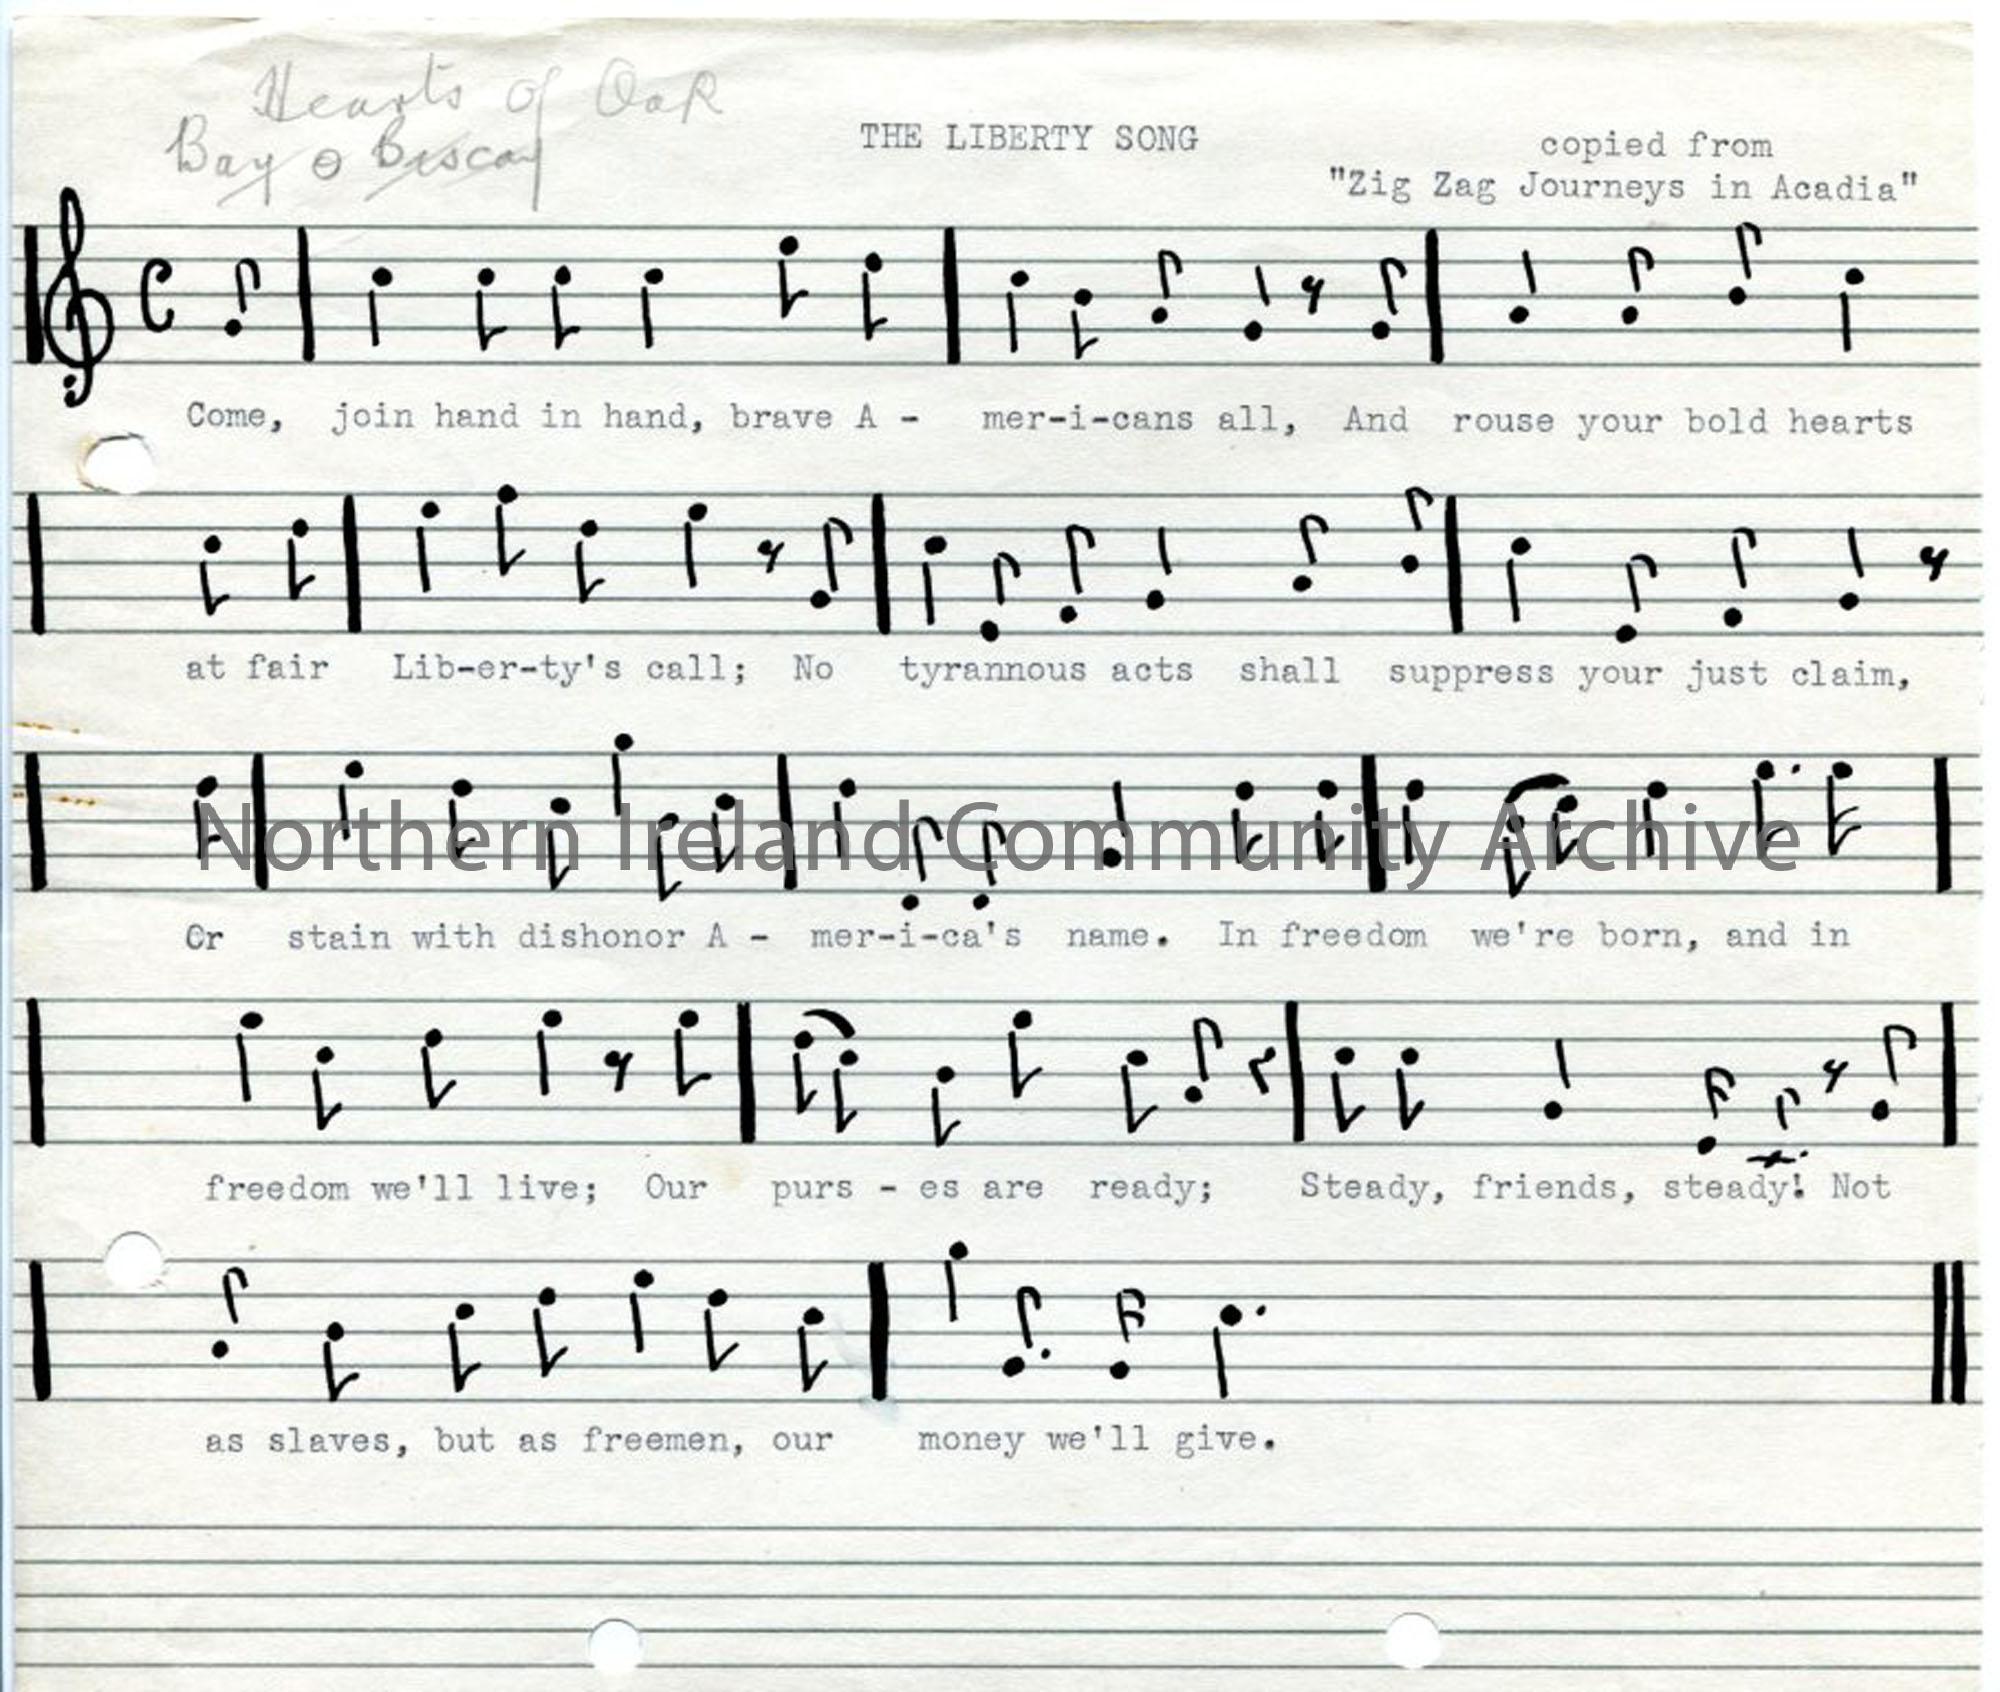 Hearts of Oak
Bay o Biscay
THE LIBERTY SONG
copied from
"Zig Zag Journeys in Acadia"
Come, join hand in hand, brave A - mer-i-cans all, And rouse your bold hearts
at fair Lib-er-ty's call; No tyrannous acts shall suppress your just claim,
Northern Ireland Community Archive
Or stain with dishonor A - mer-i-ca's name. In freedom we're born, and in
freedom we'll live; Our purs - es are ready; Steady, friends, steady! Not
as slaves, but as freemen, our money we'll give.